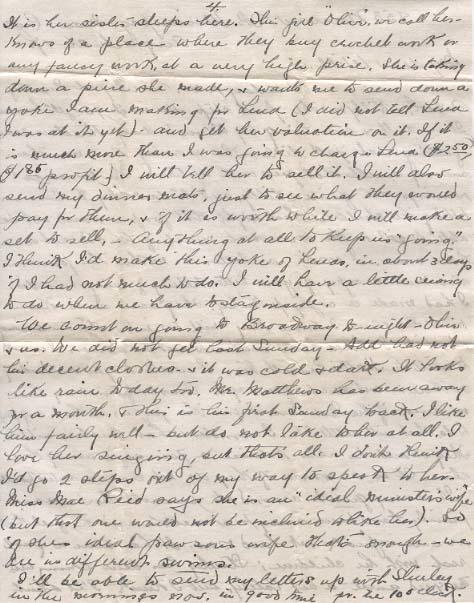 4.
It is her sister sleeps here. This girl "Olive", we call her
knows of a place where they buy crochet work or
any fancy work at a very high price. She is taking
down a piece she made, & wants me to send down a
yoke I am making for Lena (I did not tell Lena
I was at it yet) and get her valuation on it. If it
is much more than I was going to charge Lena ($2.50,
$1.86 profit) I will tell her to sell it. I will also
send my dinner mats, just to see what they would
pay for them, & if it is worth while I will make a
set to sell, - Anything at all to keep us "going".
I think I'd make this yoke of Lena's, in about 3 days
if I had not much to do. I will have a little
to do when we have to stay inside.
We count on going to Broadway to-night - Olive
& us. We did not get last Sunday - Add had not
his decent clothes - & it was cold & dark. It looks
like rain to-day too. Mr. Matthews has been away
for a month, & this is his first Sunday back. I like
him fairly well - but do not take to her at all. I
love her singing but that's all. I don't think
I'd go 2 steps out of my way to speak to her.
Miss Mae Reid says she is an "ideal minister's wife"
(but that one would not be inclined to like her). So
if she's ideal parsons wife that's enough - we
are in different swims.
I'll be able to send my letters up with Shirley
in the mornings now, in good time for the 10 o'clock.